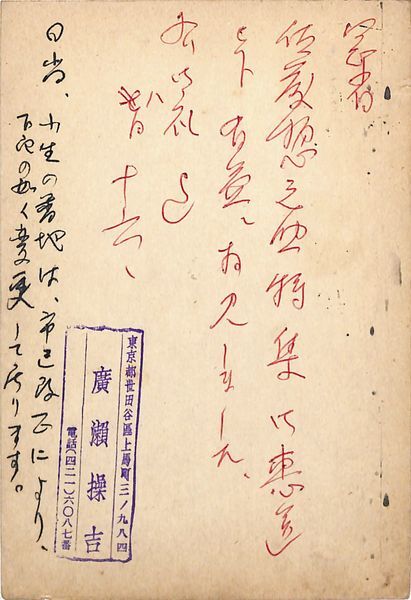 冠省
佐藤惣之助特集御恵送
下され有益に拝見しました。
右御礼迄
八月十六日
日当、小生の番地は、市区改正により、
下記の如く変更して居ります。
東京都世田谷區上馬町三ノ九八四
廣瀬操吉
電話(四二一)六〇八七番